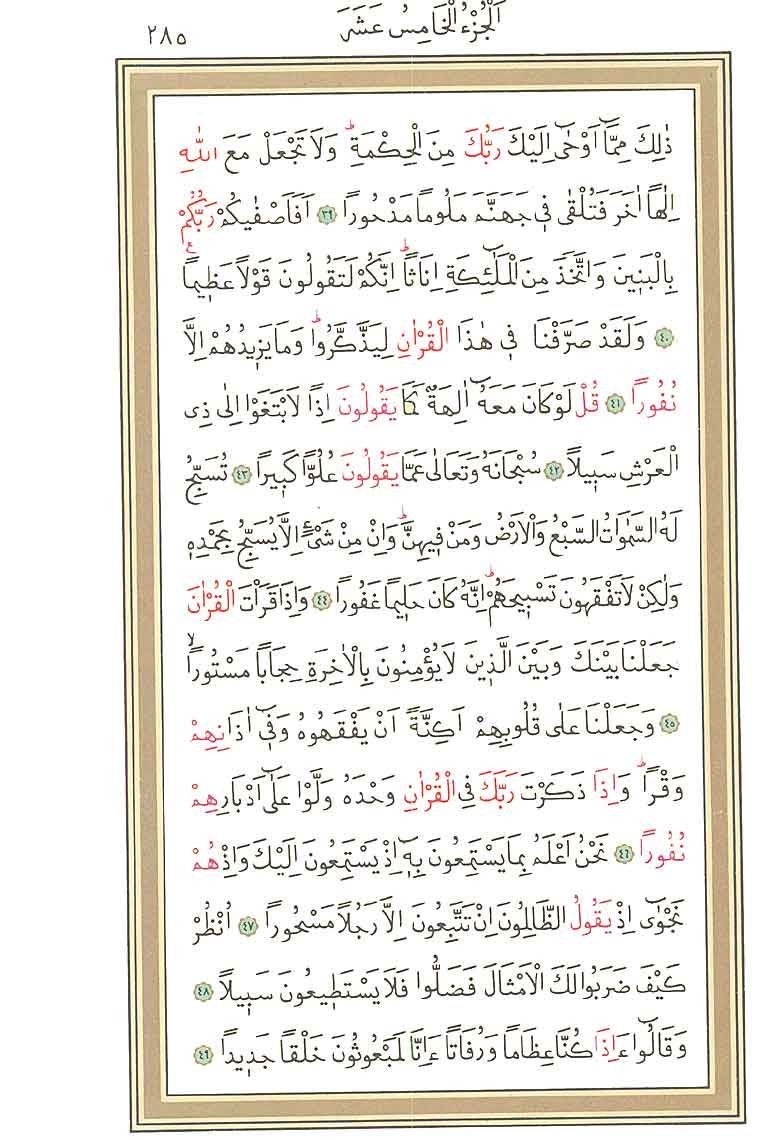 اَلْجُزْءُ الْخَامِسُ عَشَرَ ٢٨٥
ذٰلِكَ مِمَّٓا اَوْحٰٓى اِلَيْكَ رَبُّكَ مِنَ الْحِكْمَةِۜ وَلَا تَجْعَلْ مَعَ اللّٰهِ
اِلٰهًا اٰخَرَ فَتُلْقٰى ف۪ي جَهَنَّمَ مَلُومًا مَدْحُورًا ﴿٣٩﴾ اَفَاَصْفٰيكُمْ رَبُّكُمْ
بِالْبَن۪ينَ وَاتَّخَذَ مِنَ الْمَلٰٓئِكَةِ اِنَاثًاۜ اِنَّكُمْ لَتَقُولُونَ قَوْلًا عَظ۪يمًاۚ ع
﴿٤٠﴾ وَلَقَدْ صَرَّفْنَا ف۪ي هٰذَا الْقُرْاٰنِ لِيَذَّكَّرُواۜ وَمَا يَز۪يدُهُمْ اِلَّا
نُفُورًا ﴿٤١﴾ قُلْ لَوْ كَانَ مَعَهُٓ اٰلِهَةٌ كَمَا يَقُولُونَ اِذًا لَابْتَغَوْا اِلٰى ذِي
الْعَرْشِ سَب۪يلًا ﴿٤٢﴾ سُبْحَانَهُ وَتَعَالٰى عَمَّا يَقُولُونَ عُلُوًّا كَب۪يرًا ﴿٤٣﴾ تُسَبِّحُ
لَهُ السَّمٰوَاتُ السَّبْعُ وَالْاَرْضُ وَمَنْ ف۪يهِنَّۜ وَاِنْ مِنْ شَيْءٍ اِلَّا يُسَبِّحُ بِحَمْدِه۪
وَلٰكِنْ لَا تَفْقَهُونَ تَسْب۪يحَهُمْۜ اِنَّهُ كَانَ حَل۪يمًا غَفُورًا ﴿٤٤﴾ وَاِذَا قَرَأْتَ الْقُرْاٰنَ
جَعَلْنَا بَيْنَكَ وَبَيْنَ الَّذ۪ينَ لَا يُؤْمِنُونَ بِالْاٰخِرَةِ حِجَابًا مَسْتُورًاۙ
﴿٤٥﴾ وَجَعَلْنَا عَلٰى قُلُوبِهِمْ اَكِنَّةً اَنْ يَفْقَهُوهُ وَف۪ٓي اٰذَانِهِمْ
وَقْرًاۜ وَاِذَا ذَكَرْتَ رَبَّكَ فِي الْقُرْاٰنِ وَحْدَهُ وَلَّوْا عَلٰٓى اَدْبَارِهِمْ
نُفُورًا ﴿٤٦﴾ نَحْنُ اَعْلَمُ بِمَا يَسْتَمِعُونَ بِه۪ٓ اِذْ يَسْتَمِعُونَ اِلَيْكَ وَاِذْ هُمْ
نَجْوٰٓى اِذْ يَقُولُ الظَّالِمُونَ اِنْ تَتَّبِعُونَ اِلَّا رَجُلًا مَسْحُورًا ﴿٤٧﴾ اُنْظُرْ
كَيْفَ ضَرَبُوا لَكَ الْاَمْثَالَ فَضَلُّوا فَلَا يَسْتَط۪يعُونَ سَب۪يلًا ﴿٤٨﴾
وَقَالُٓوا ءَاِذَا كُنَّا عِظَامًا وَرُفَاتًا ءَاِنَّا لَمَبْعُوثُونَ خَلْقًا جَد۪يدًا ﴿٤٩﴾